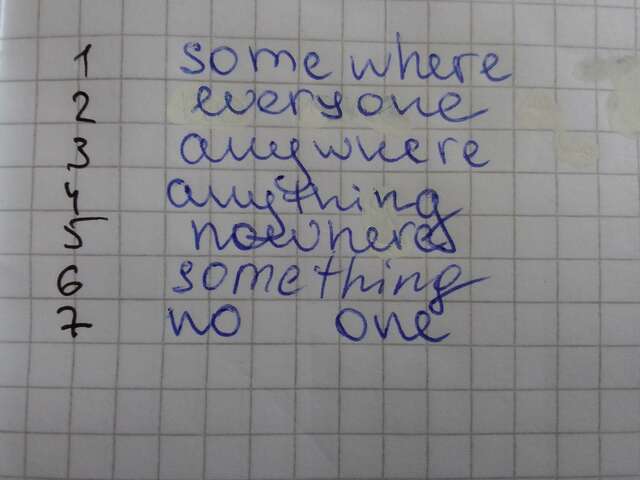 1 some where
2 everyone
3 anywhere
4 anything
5 nowhere
6 something
7 no one